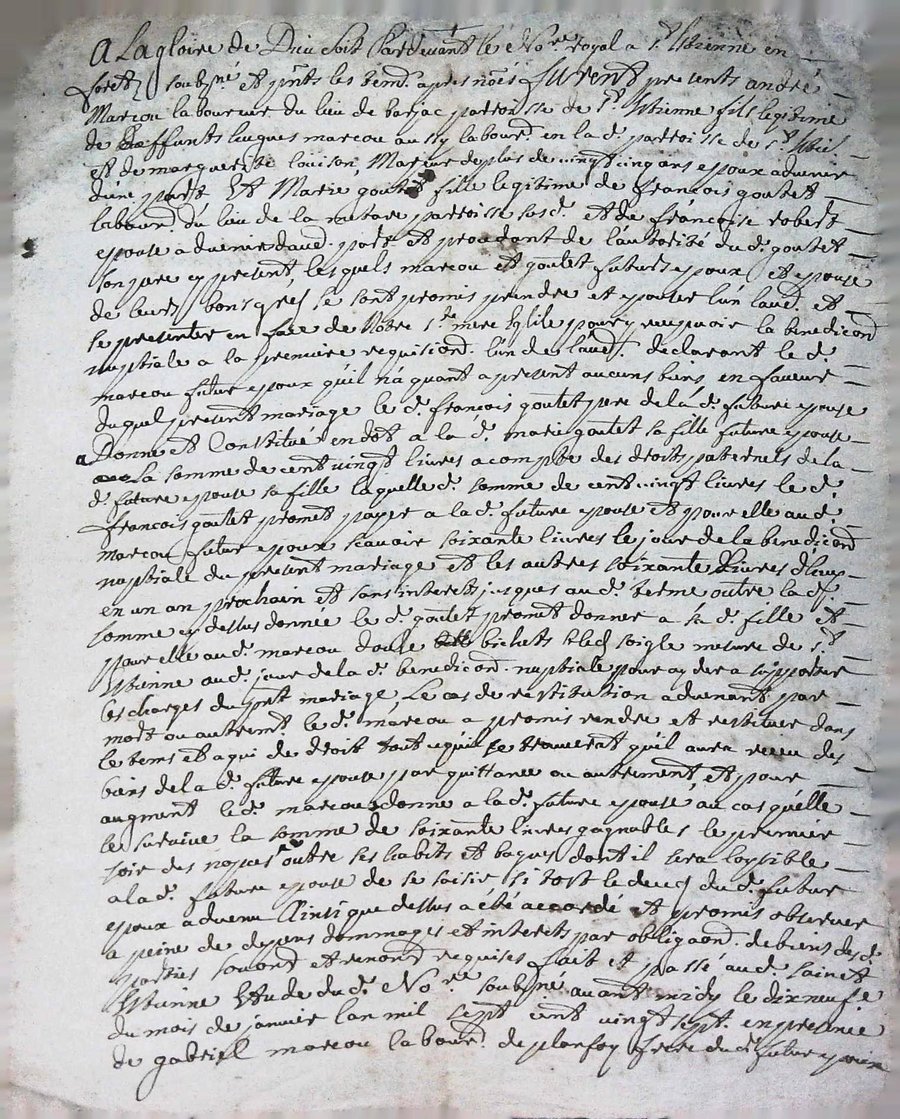 A La gloire de Dieu soit Pardevant le No.re royal a s.t Etienne en
forest soubz.né et pñts les tem. apres nões furent presents andré
Marcou laboureur du lieu de barjac parroisse de s.t Etienne fils legitime
de deffunts hugues marcou aussy labour. en la d. parroisse de s.t
et de marguerite louison, Majeur de plus de vingt cinq ans epoux advenir
d'une part Et Marie goutet fille legitime de francois goutet
labour. du lieu de la parroisse susd. et de francoise robert
epouse advenir d'aud. part et procedant de l'autorité du d. goutet
son pere cy present, lesquels marcou et goutet futurs epoux et epouse
de leurs bons grés se sont promis prendre et epouser l'un l'aud. et
se presenter en face de Nôtre s.te mere Eglise pour y recepvoir la benediond
nuptiale a la premiere requisiond. l'un de l'aud. declarant le d.
marcou futur epoux qu'il n'a quant a present aucuns biens en faveur
duquel present mariage le d. francois goutet pere de la d. future epouse
a Donné et Constitué en dot a la d. marie goutet sa fille future epouse
La somme de cent vingt livres a compte des droits paternels de la
d. future epouse sa fille laquelle d. somme de cent vingt livres le d.
francois goutet promet payer a la d. future epouse et pour elle au d.
marcou futur epoux scavoir soixante livres le jour de la benediond
nuptiale du present mariage et les autres soixante livres d'huy
en un an prochain et sans interets jusques au d. terme outre la d.
somme cy dessus donnée le d. goutet promet donner a sa d. fille et
pour elle au d. marcou douze bichets bled soigle mesure de s.t
Etienne au d. jour de la d. benediond. nuptiale pour ayder a supporter
les charges du pñt mariage, Le cas de restitution advenant par
mort ou autremt. le d. marcou a promis rendre et restituer dans
le tems et a qui de droit tout ce qu'il se trouverat qu'il aura receu des
biens de la d. future epouse par quittance ou autrement, et pour
augment le d. marcou donne a la d. future epouse au cas qu'elle
le survive la somme de soixante livres gagnables le premier
soir des nopces outre ses habits et bagues dont il sera loysible
a la d. future epouse de se saisir si tost le deces du d. futur
epoux advenu Ainsi que dessus a été accordé et promis observer
a peine de depens dommages et interets par obligaond. de biens des d.
parties soumond. et renond. requises fait et passé au d. sainct
Etienne Etude du d. No.re soubz.né avant midy le dixneufe
du mois de janvier l'an mil sept cent vingt sept. en presence
de gabriel marcou labour. de planfoy frere du d. futur epoux